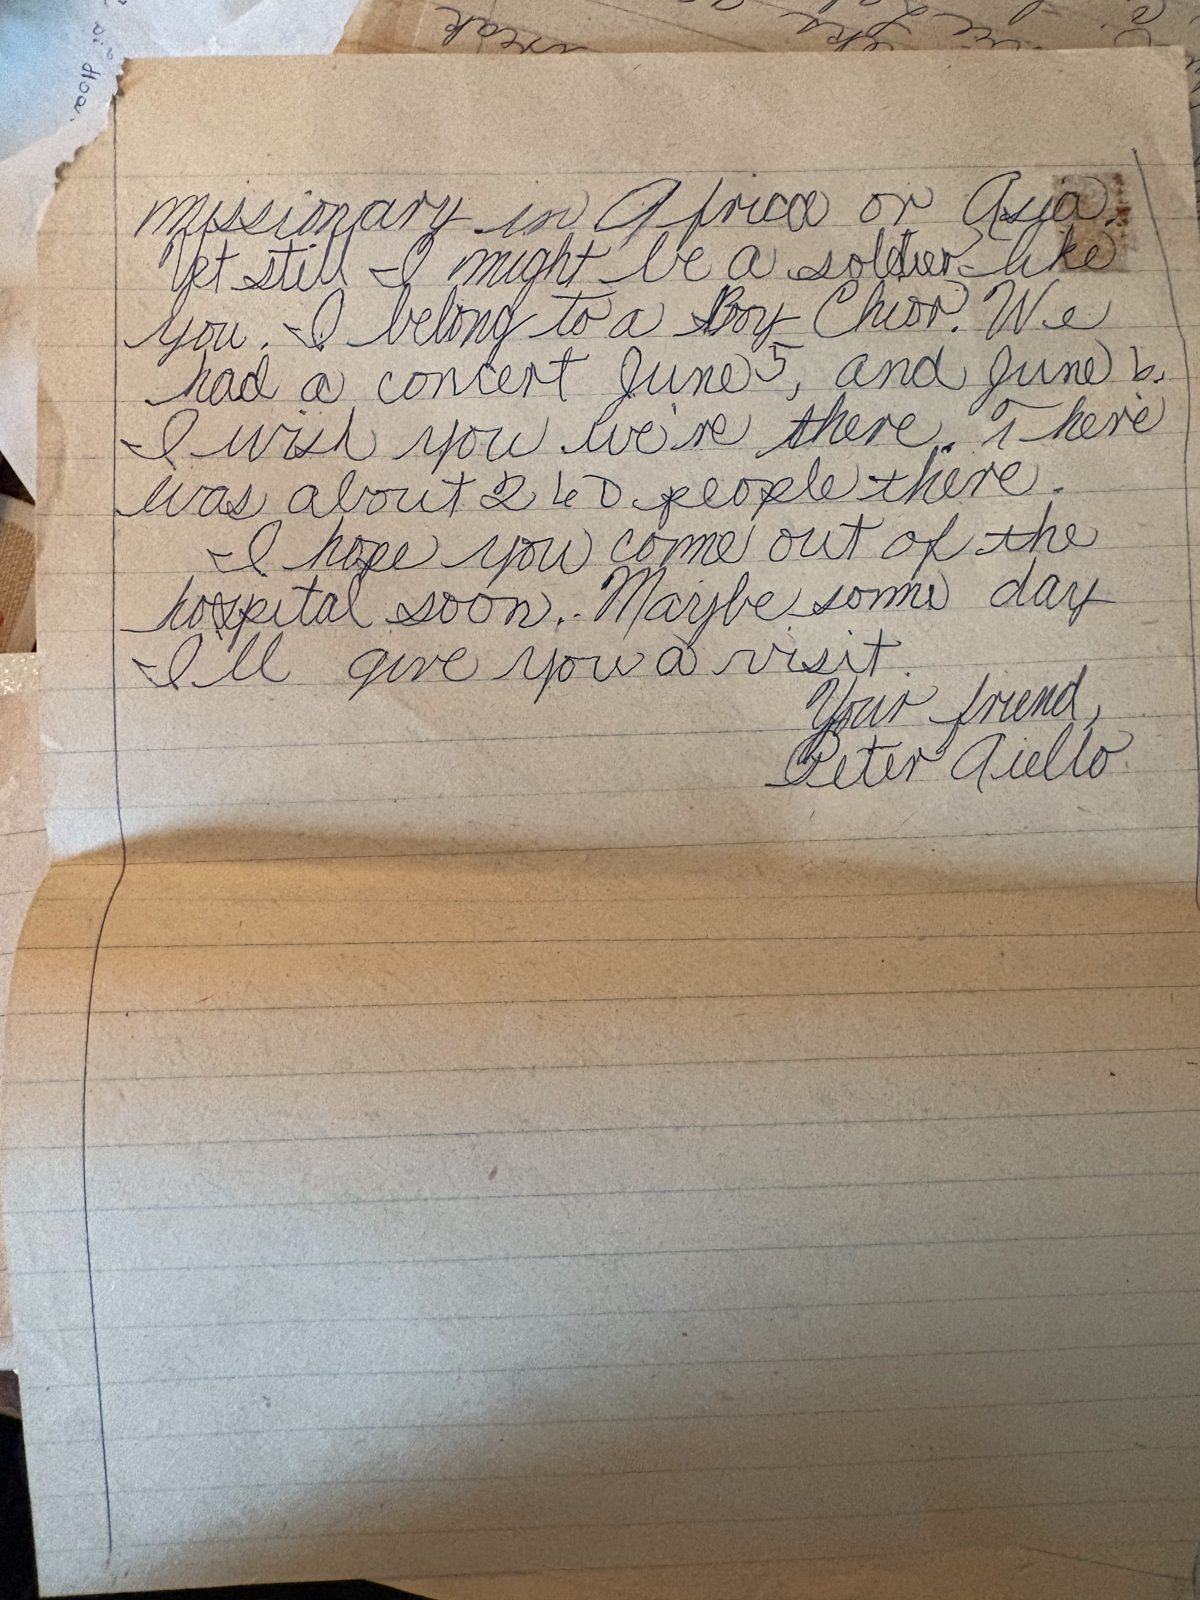 missionary in Africa or Asia.
Yet still I might be a soldier like
you. I belong to a Boy Chior. We
had a concert June 5, and June 6.
I wish you we're there. There
was about 240 people there.
I hope you come out of the
hospital soon. Maybe some day
I'll give you a visit.
Your friend,
Peter Aiello